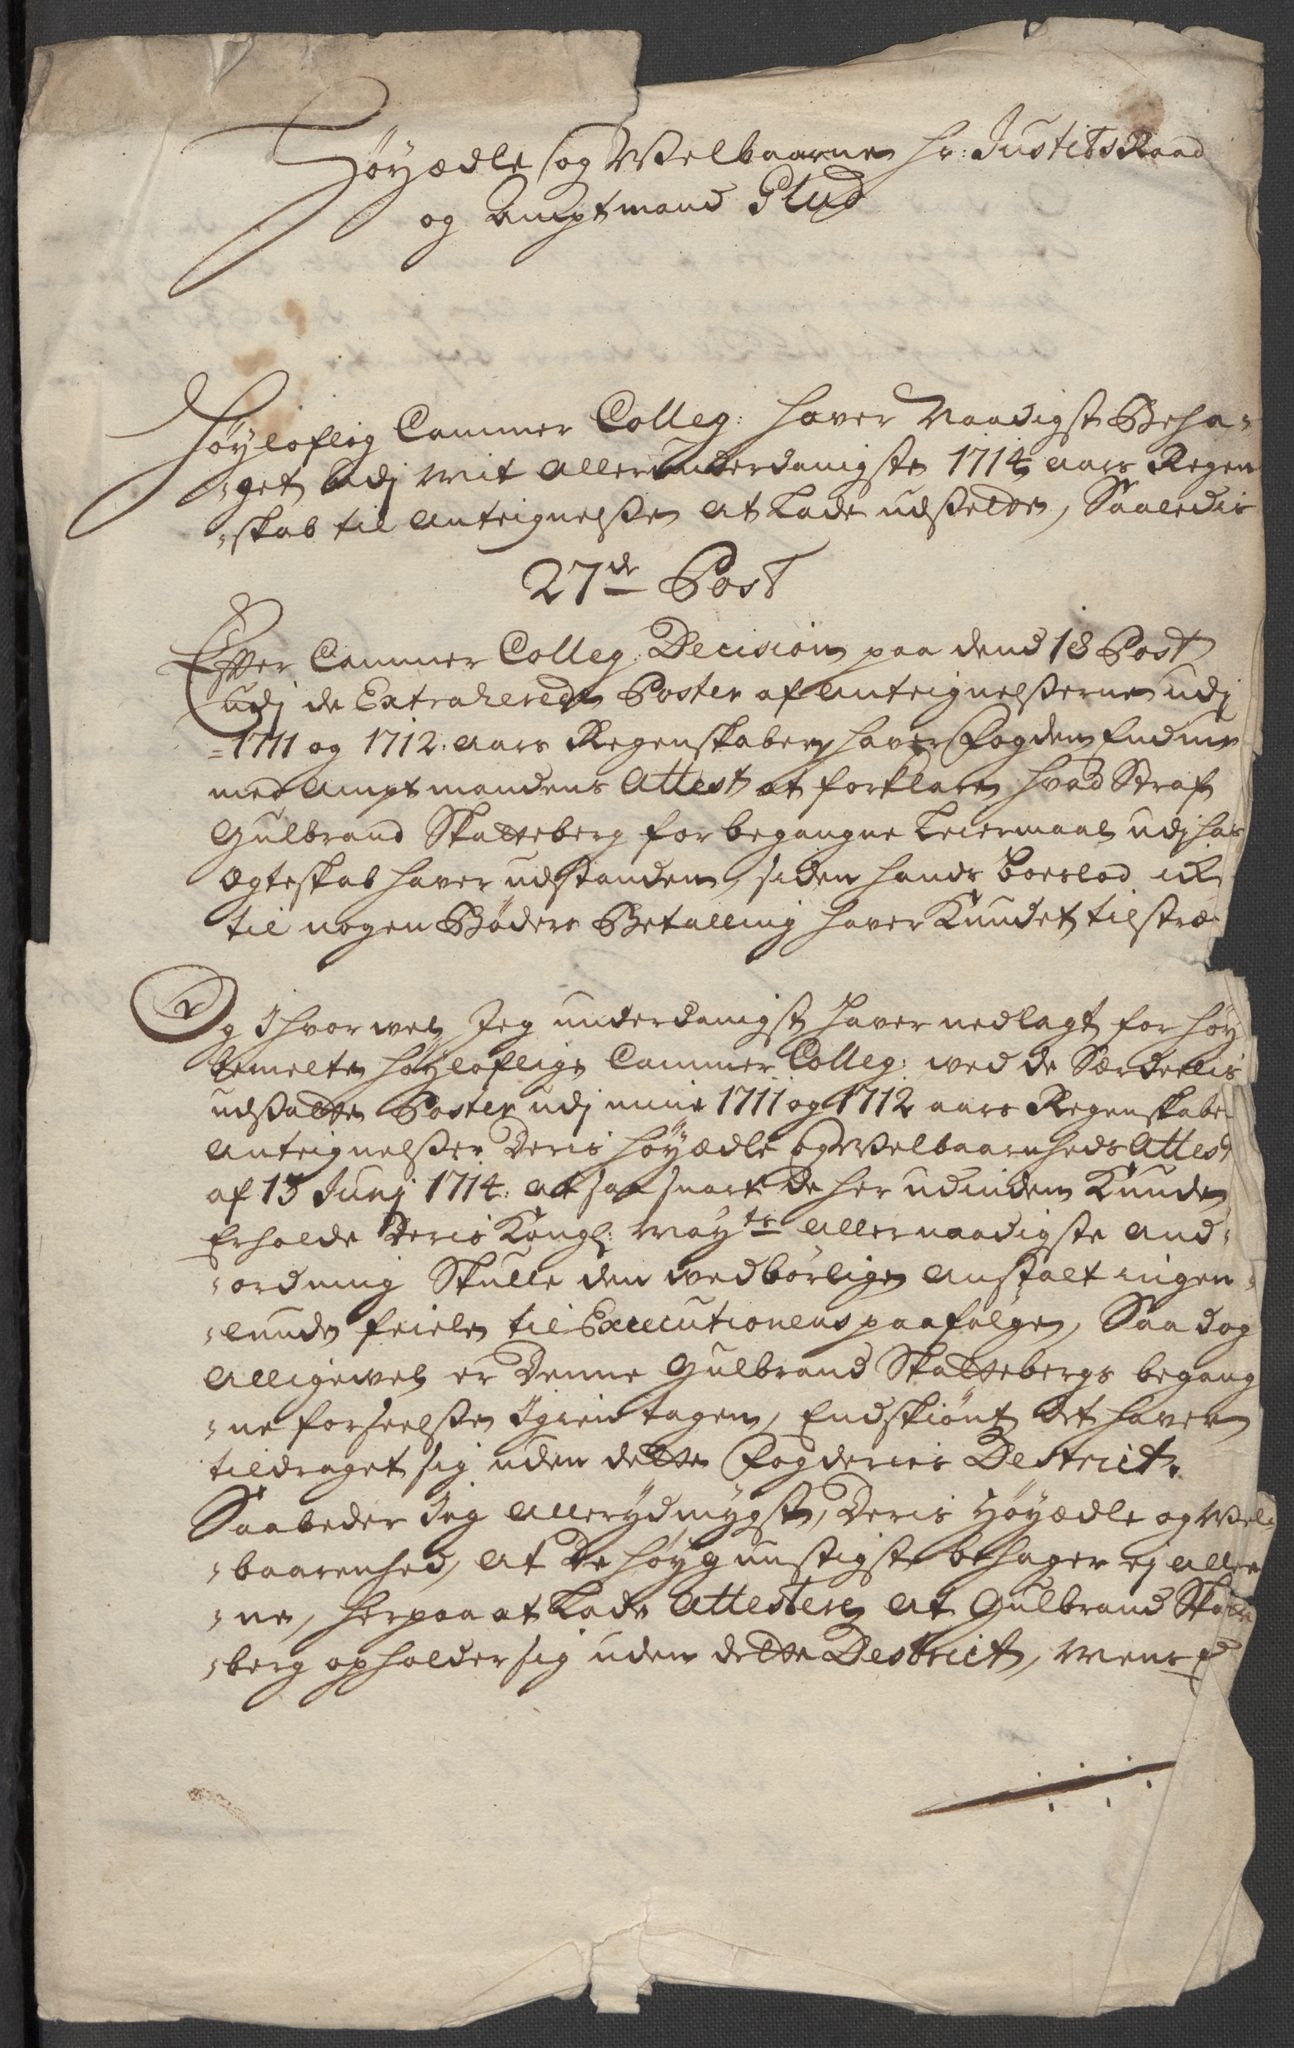 Høyædle og Welbaarne Hr: Justits Raad
og Amptmand Stud
Høyloflig Cammer Colleg: haver Naadigst Beha-
-get udj mit allerunderdanigste 1714 aars Regen
-skab til Anteignelsse at Lade udsætte, Saaledis
27de Post
Efter Cammer Colleg: Decision paa dend 18 Post
udj de Extraherede Poster af Anteignelsserne udj
-1711 og 1712: aars Regenskaber haver Fogden Endnu
med Amptmandens Attest at forklare hvad Straf
Gulbrand Skatteberg for begangne Leiermaal udj hans
Egteskab haver udstanden, siden hands Boeslod ick
til nogen Bøders Betalling haver Kundet tilstræ
Og Ihvorwel Jeg underdanigst haver nedlagt for høy
bemelte høyloflige Cammer Colleg: wed de Særdellis
udsatte Poster udj mine 1711 og 1712 aars Regenskabe
Anteignelsser Deris høyædle og Welbaarnheds Attest
af 13 Junj 1714: at saa snart de her udinden Kunde
Erholde Deris Kongl: May:ts allernaadigste And-
-ordning Skulle den wedbørlige Anstalt ingen-
-lunde feile til Executionens paafølge, Saa dog
Alligewel er Denne Gulbrand Skattebergs begang
-ne forseelsse Igientagen, Endskiønt det haver
tildraget sig uden dette Fogderies Destrict.
Saa beder Jeg allerydmygst, Deris Høyædle og Wel-
-baarenhed, at De høygunstigst behager ej alle
-ne, herpaa at Lade Attestere at Gulbrand Skatte
-berg opholder sig uden dette Destrict, Mens